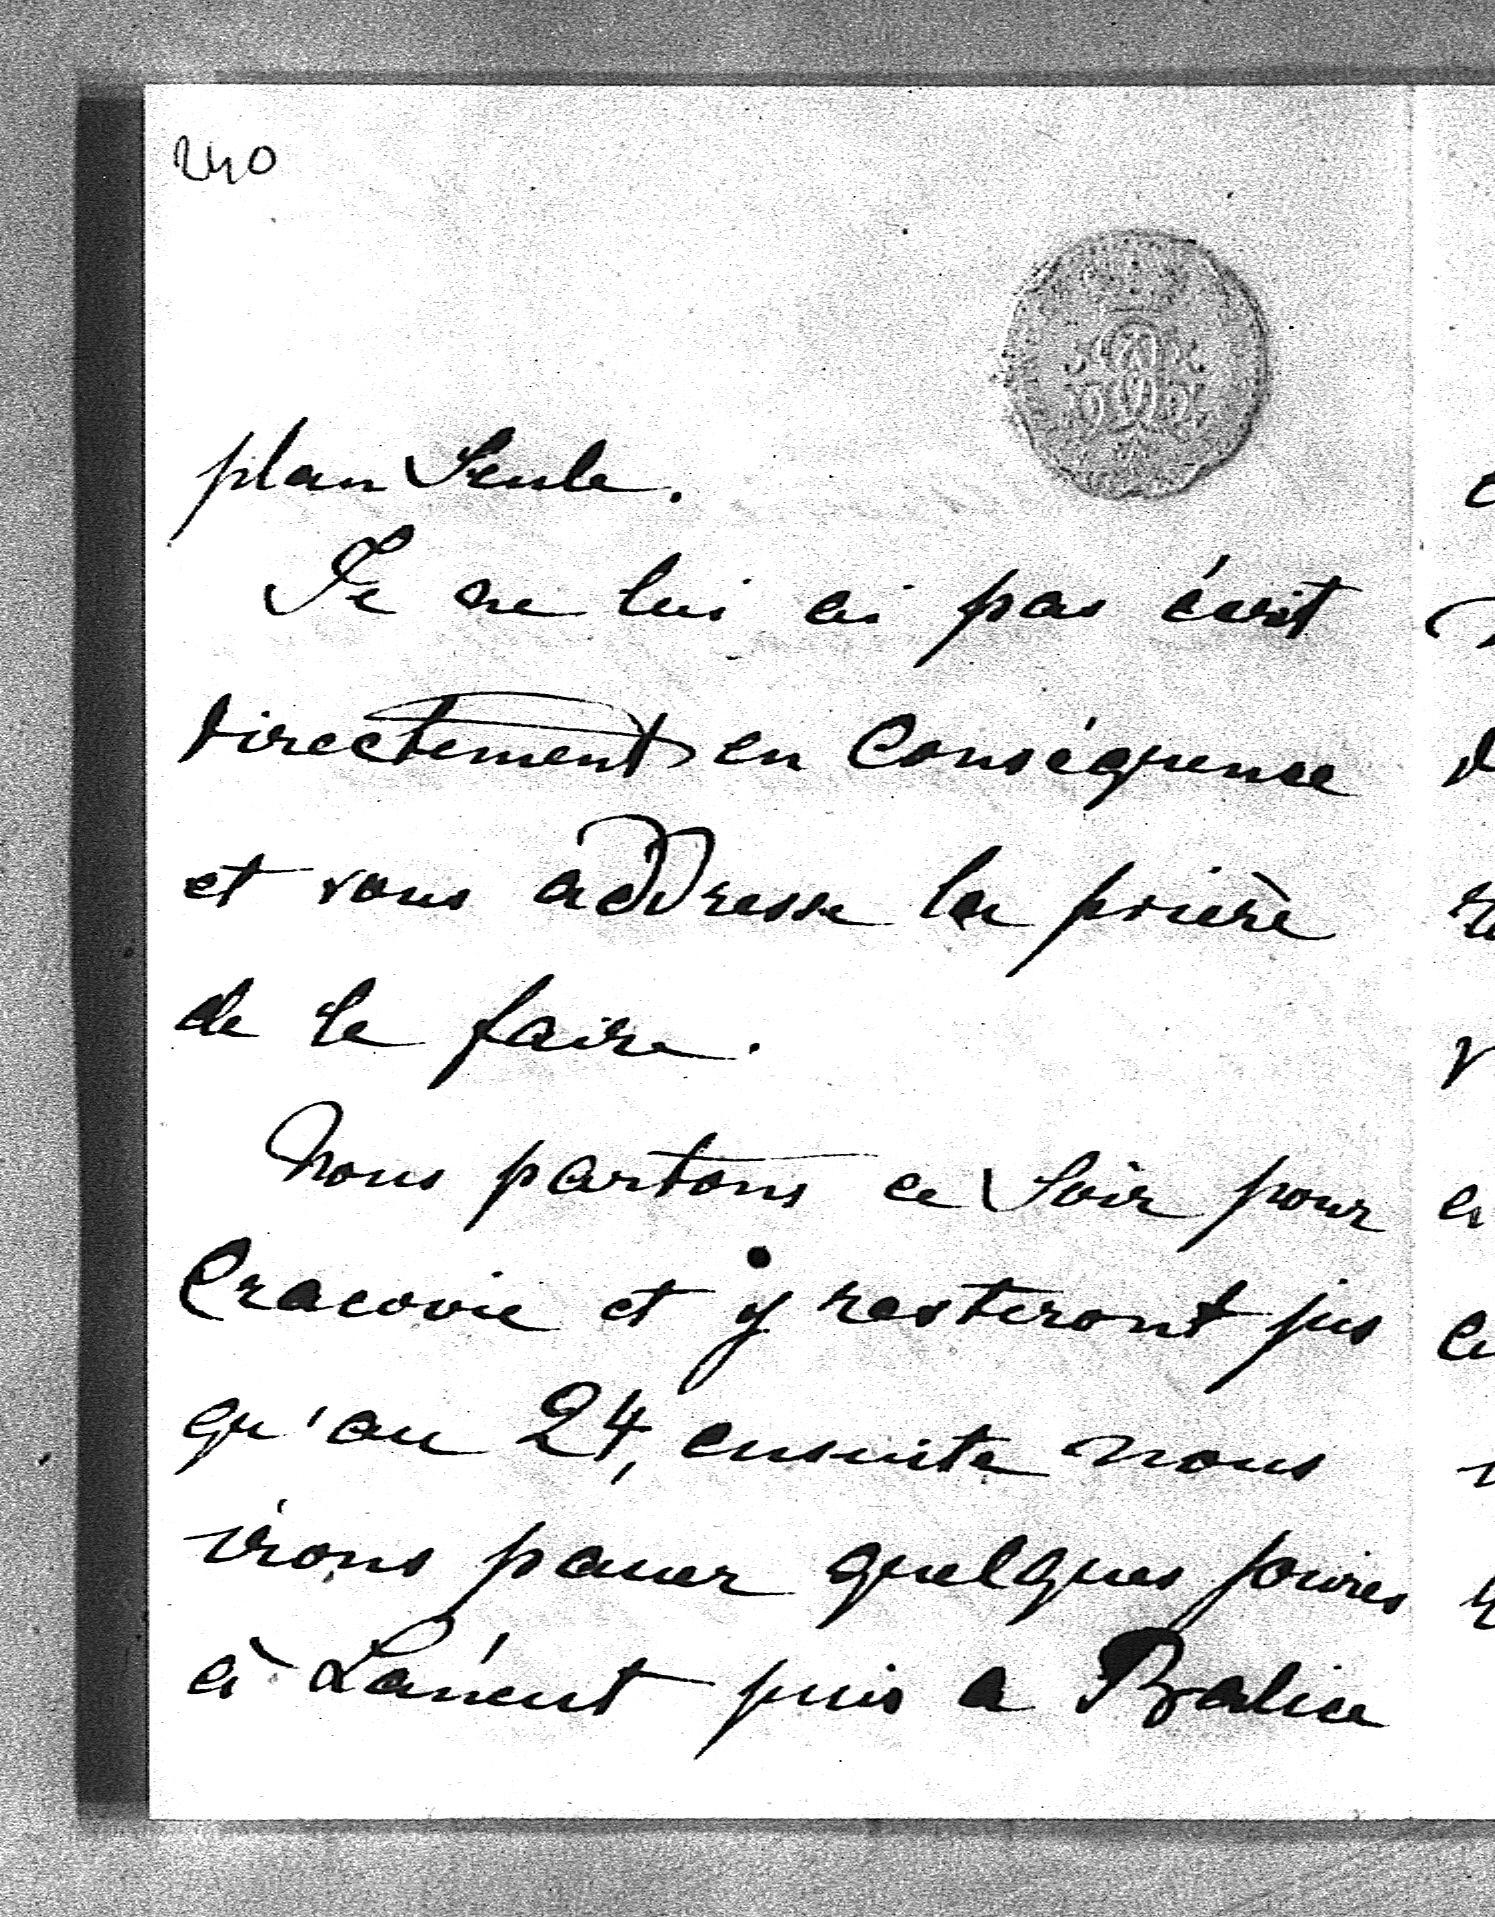 240
plan Seule.
Je ne lui ai pas écrit
directement en Conséquense
et vous addresse la prière
de le faire.
Nous partons ce Soir pour
Cracovie et y resteront jus
qu'au 24, ensuite nous
irons passer quelques jours
à Lańcut puis a Balice